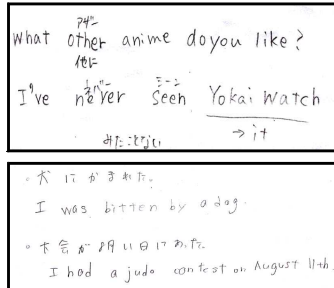 アザー
What other anime do you like?
他に
ネバー シーン
I've never seen Yokai Watch
みたことない → it
・犬にかまれた。
I was bitten by a dog.
・大会が8月11日にあった。
I had a judo contest on August 11th.